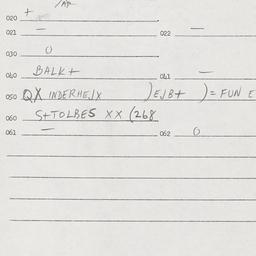 020 +
021 — 022 —
030 0
040 BALK+ 041 —
050 QX INDERHEJX )EJB+ )= FUN E
060 S+TOLBES XX (268
061 — 062 0